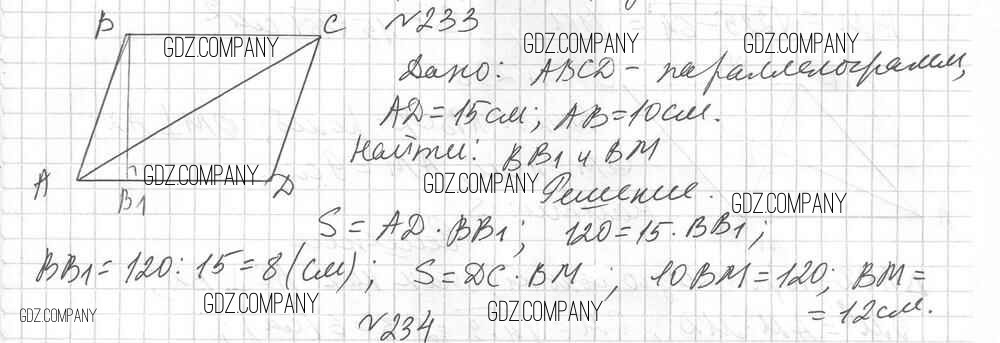 №233
B C
GDZ.COMPANY GDZ.COMPANY GDZ.COMPANY
Дано: ABCD - параллелограмм,
AD=15см; AB=10см.
Найти: BB1 и BM
A B1 D
GDZ.COMPANY GDZ.COMPANY GDZ.COMPANY
Решение.
S = AD · BB1; 120=15·BB1;
BB1=120:15=8(см); S=DC·BM; 10BM=120; BM=
=12см.
GDZ.COMPANY GDZ.COMPANY GDZ.COMPANY
№234